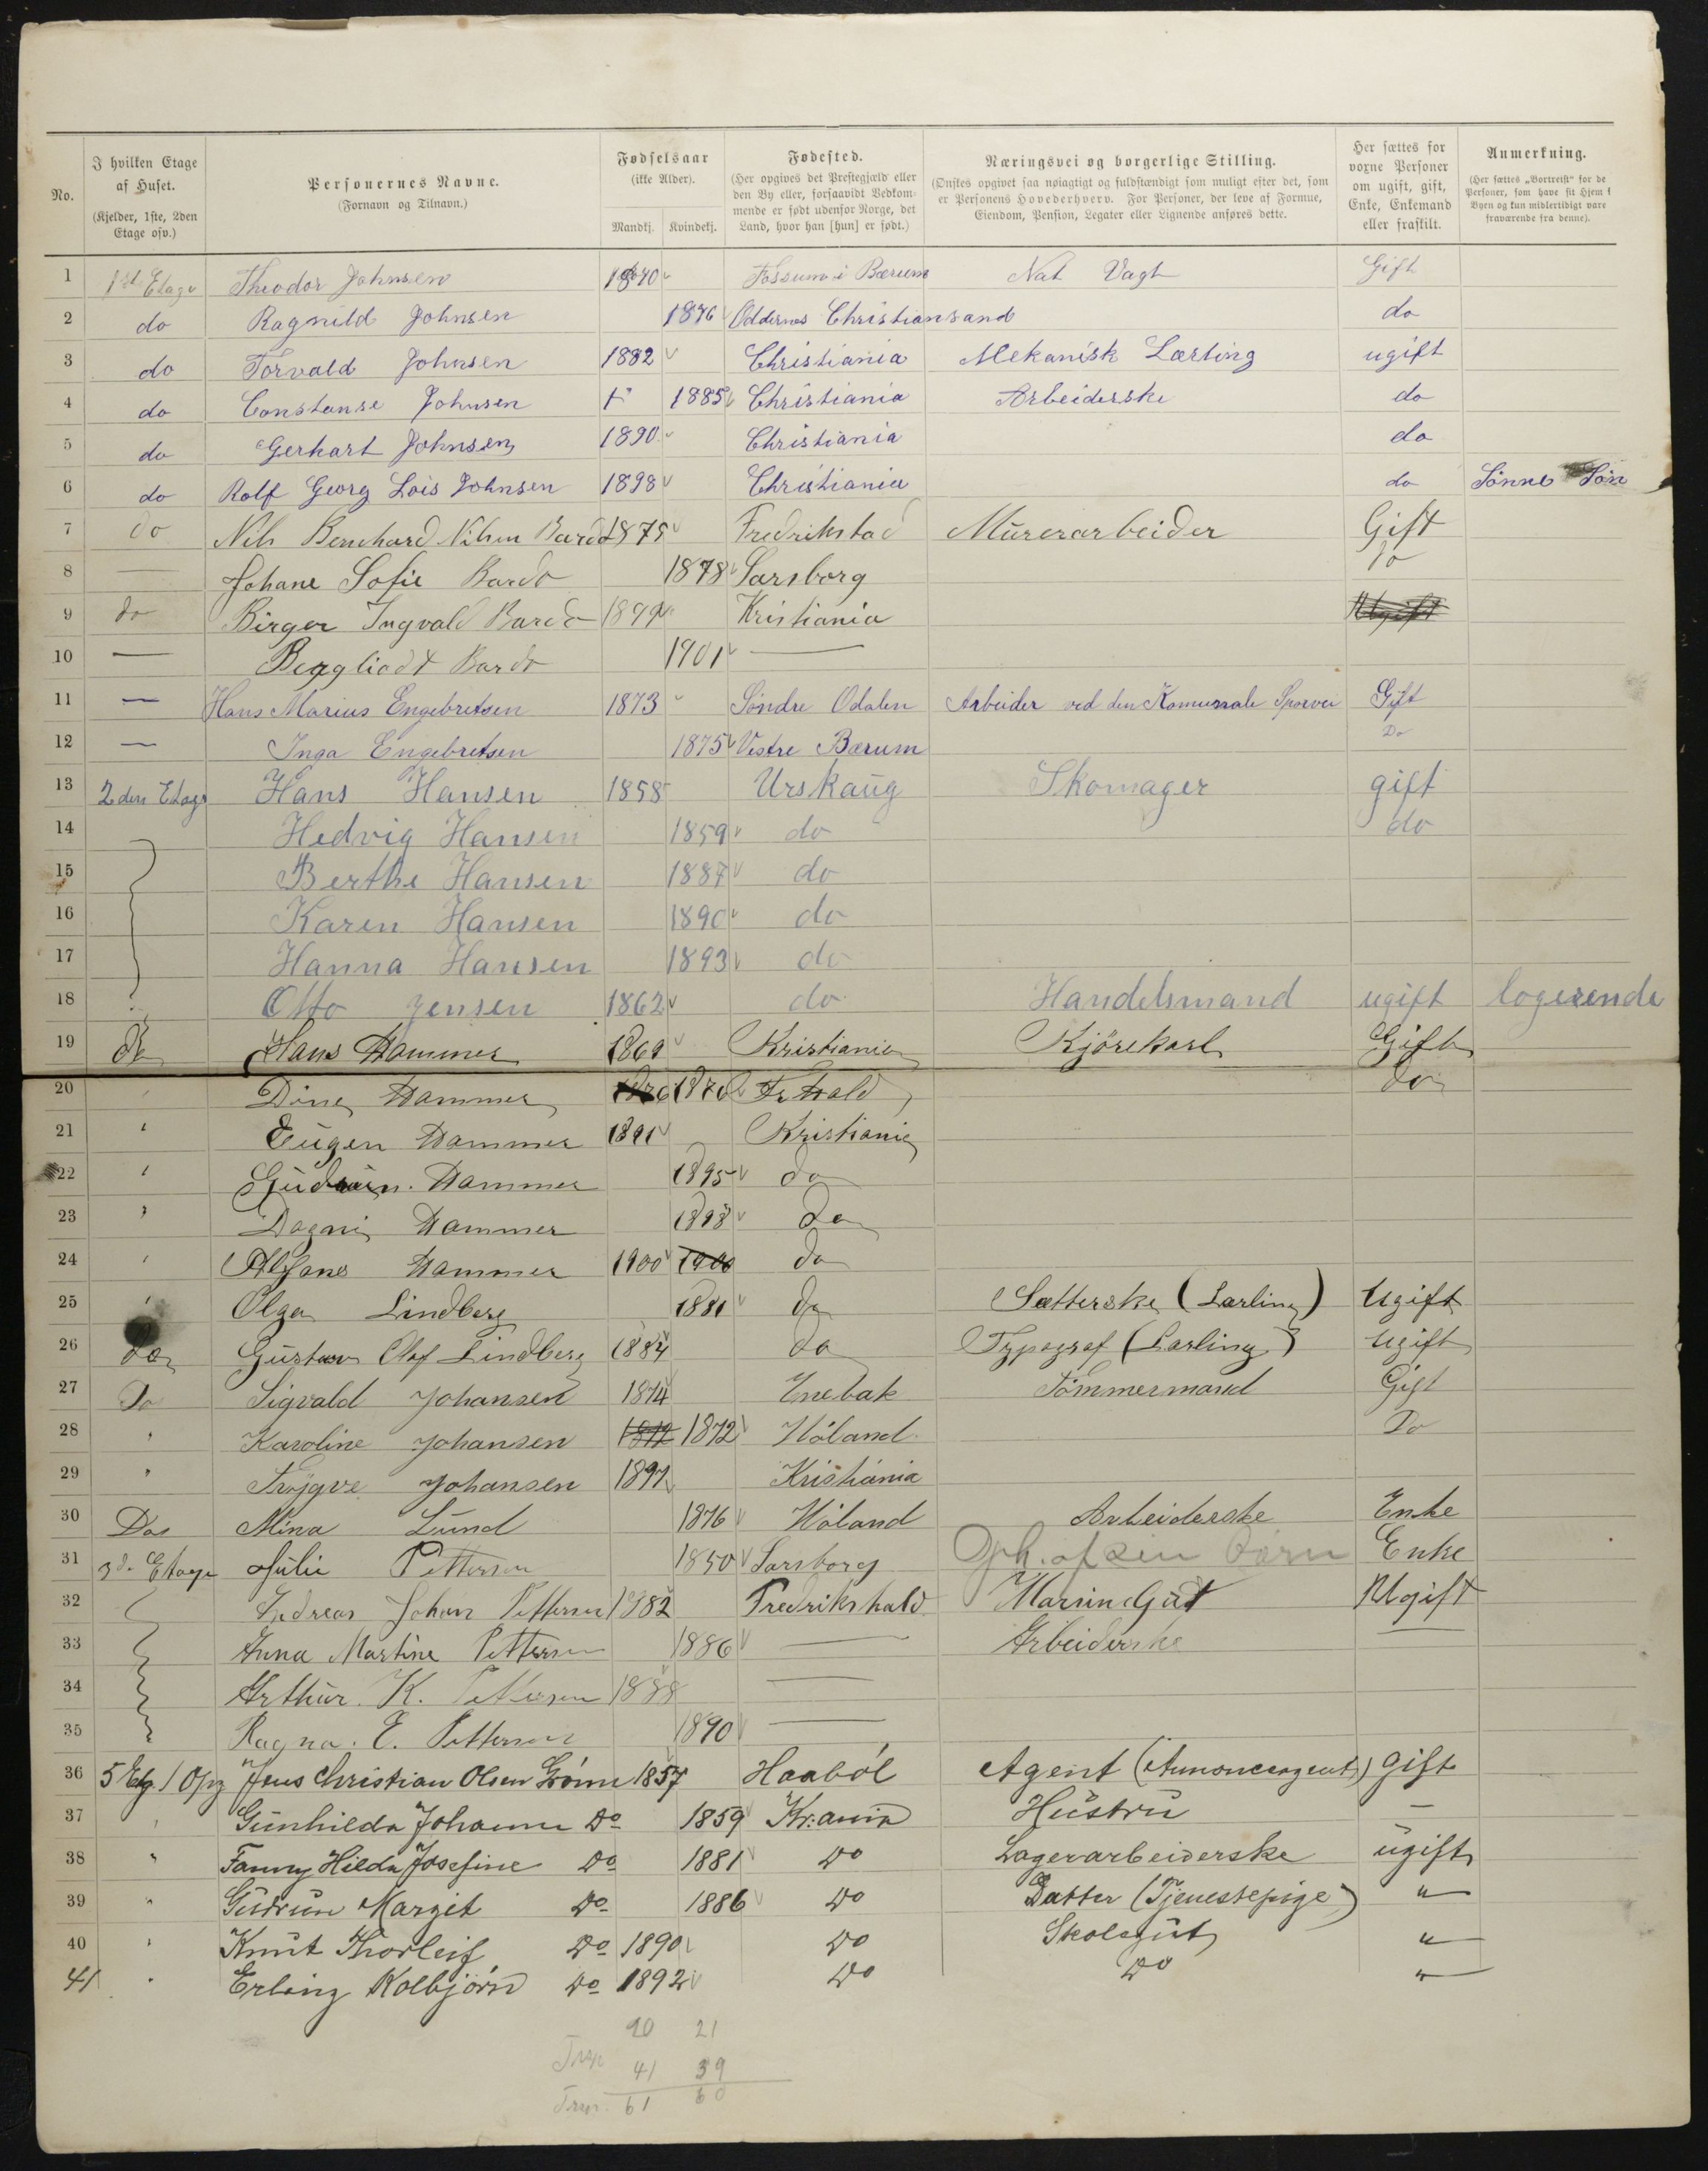 No.
I hvilken Etage af Huset. (Kjelder, 1ste, 2den Etage osv.)
Personernes Navne. (Fornavn og Tilnavn.)
Fødselsaar (ikke Alder). Mandkj. Kvindekj.
Fødested. (Her opgives det Prestegjæld eller den By eller, forsaavidt Vedkommende er født udenfor Norge, det Land, hvor han [hun] er født.)
Næringsvei og borgerlige Stilling. (Ønskes opgivet saa nøiagtigt og fuldstændigt som muligt efter det, som er Personens Hovederhverv. For Personer, der leve af Formue, Eiendom, Pension, Legater eller Lignende anføres dette.
Her sættes for voxne Personer om ugift, gift, Enke, Enkemand eller fraskilt.
Anmerkning. (Her sættes „Bortreist" for de Personer, som have sit Hjem i Byen og kun midlertidigt være fraværende fra denne).
1 1st Etage Theodor Johnsen 1840 Fossum i Bærum Nat Vagt Gift
2 do Ragnild Johnsen 1876 Oddernes Christiansand do
3 do Torvald Johnsen 1882 Christiania Mekanisk Lærling ugift
4 do Constanse Johnsen 1885 Christiania Arbeiderske do
5 do Gerhart Johnsen 1890 Christiania do
6 do Rolf Georg Lois Johnsen 1898 Christiania do Sønne Søn
7 do Nils Bernhard Nilsen Bardo 1875 Fredrikstad Murerarbeider Gift
8 — Johane Sofie Bardo 1878 Sarsborg do
9 do Birger Ingvald Bardo 1899 Kristiania Ugift
10 — Bergliodt Bardo 1901 —
11 — Hans Marius Engebretsen 1873 Søndre Odalen Arbeider ved den Komunale Sporvei Gift
12 — Inga Engebretsen 1875 Vestre Bærum Do
13 2den Etage Hans Hansen 1858 Urskaug Skomager gift
14 Hedvig Hansen 1859 do do
15 Berthe Hansen 1887 do
16 Karen Hansen 1890 do
17 Hanna Hansen 1893 do
18 Otto Jensen 1862 do Handelsmand ugift logerende
19 do Hans Hammer 1869 Kristiania Kjörekarl Gift
20 Dina Hammer 1876 1870 Fr hald do
21 " Eugen Hammer 1891 Kristiania
22 " Gudrun Hammer 1895 do
23 " Dagni Hammer 1898 do
24 " Alfons Hammer 1900 1900 do
25 " Olga Lindberg 1881 do Sætterske (Lærling) Ugift
26 do Gustav Olaf Lindberg 1884 do Typograf (Lærling) Ugift
27 Do Sigvald Johansen 1874 Enebak Tømmermand Gift
28 " Karoline Johansen 1872 1872 Höland Do
29 " Trÿgve Johansen 1897 Kristiania
30 Do Mina Lund 1876 Höland Arbeiderske Enke
31 3de Etage Julie Pettersen 1850 Sarsborg Oph. af sin Børn Enke
32 Andreas Johan Pettersen 1882 Fredrikshald Ugift
33 Anna Martine Pettersen 1886 — Arbeiderske —
34 Arthur. K. Pettersen 1888 —
35 Ragna. E. Pettersen 1890 —
36 5 Etg. 1 Opg Jens Christian Olsen Grönn 1857 Haaböl Agent (Annonceagent) gift
37 " Gunhilda Johanne Do 1859 Kr:ania Hustru —
38 " Fanny Hilda Josefine Do 1881 Do Lagerarbeiderske ugift
39 " Gudrun Margit Do 1886 Do Datter (Tjenestepige) "
40 " Knut Thorleif Do 1890 Do Skolegut "
41 " Erling Kolbjörn Do 1892 Do Do "
20 21
41 39
61 60